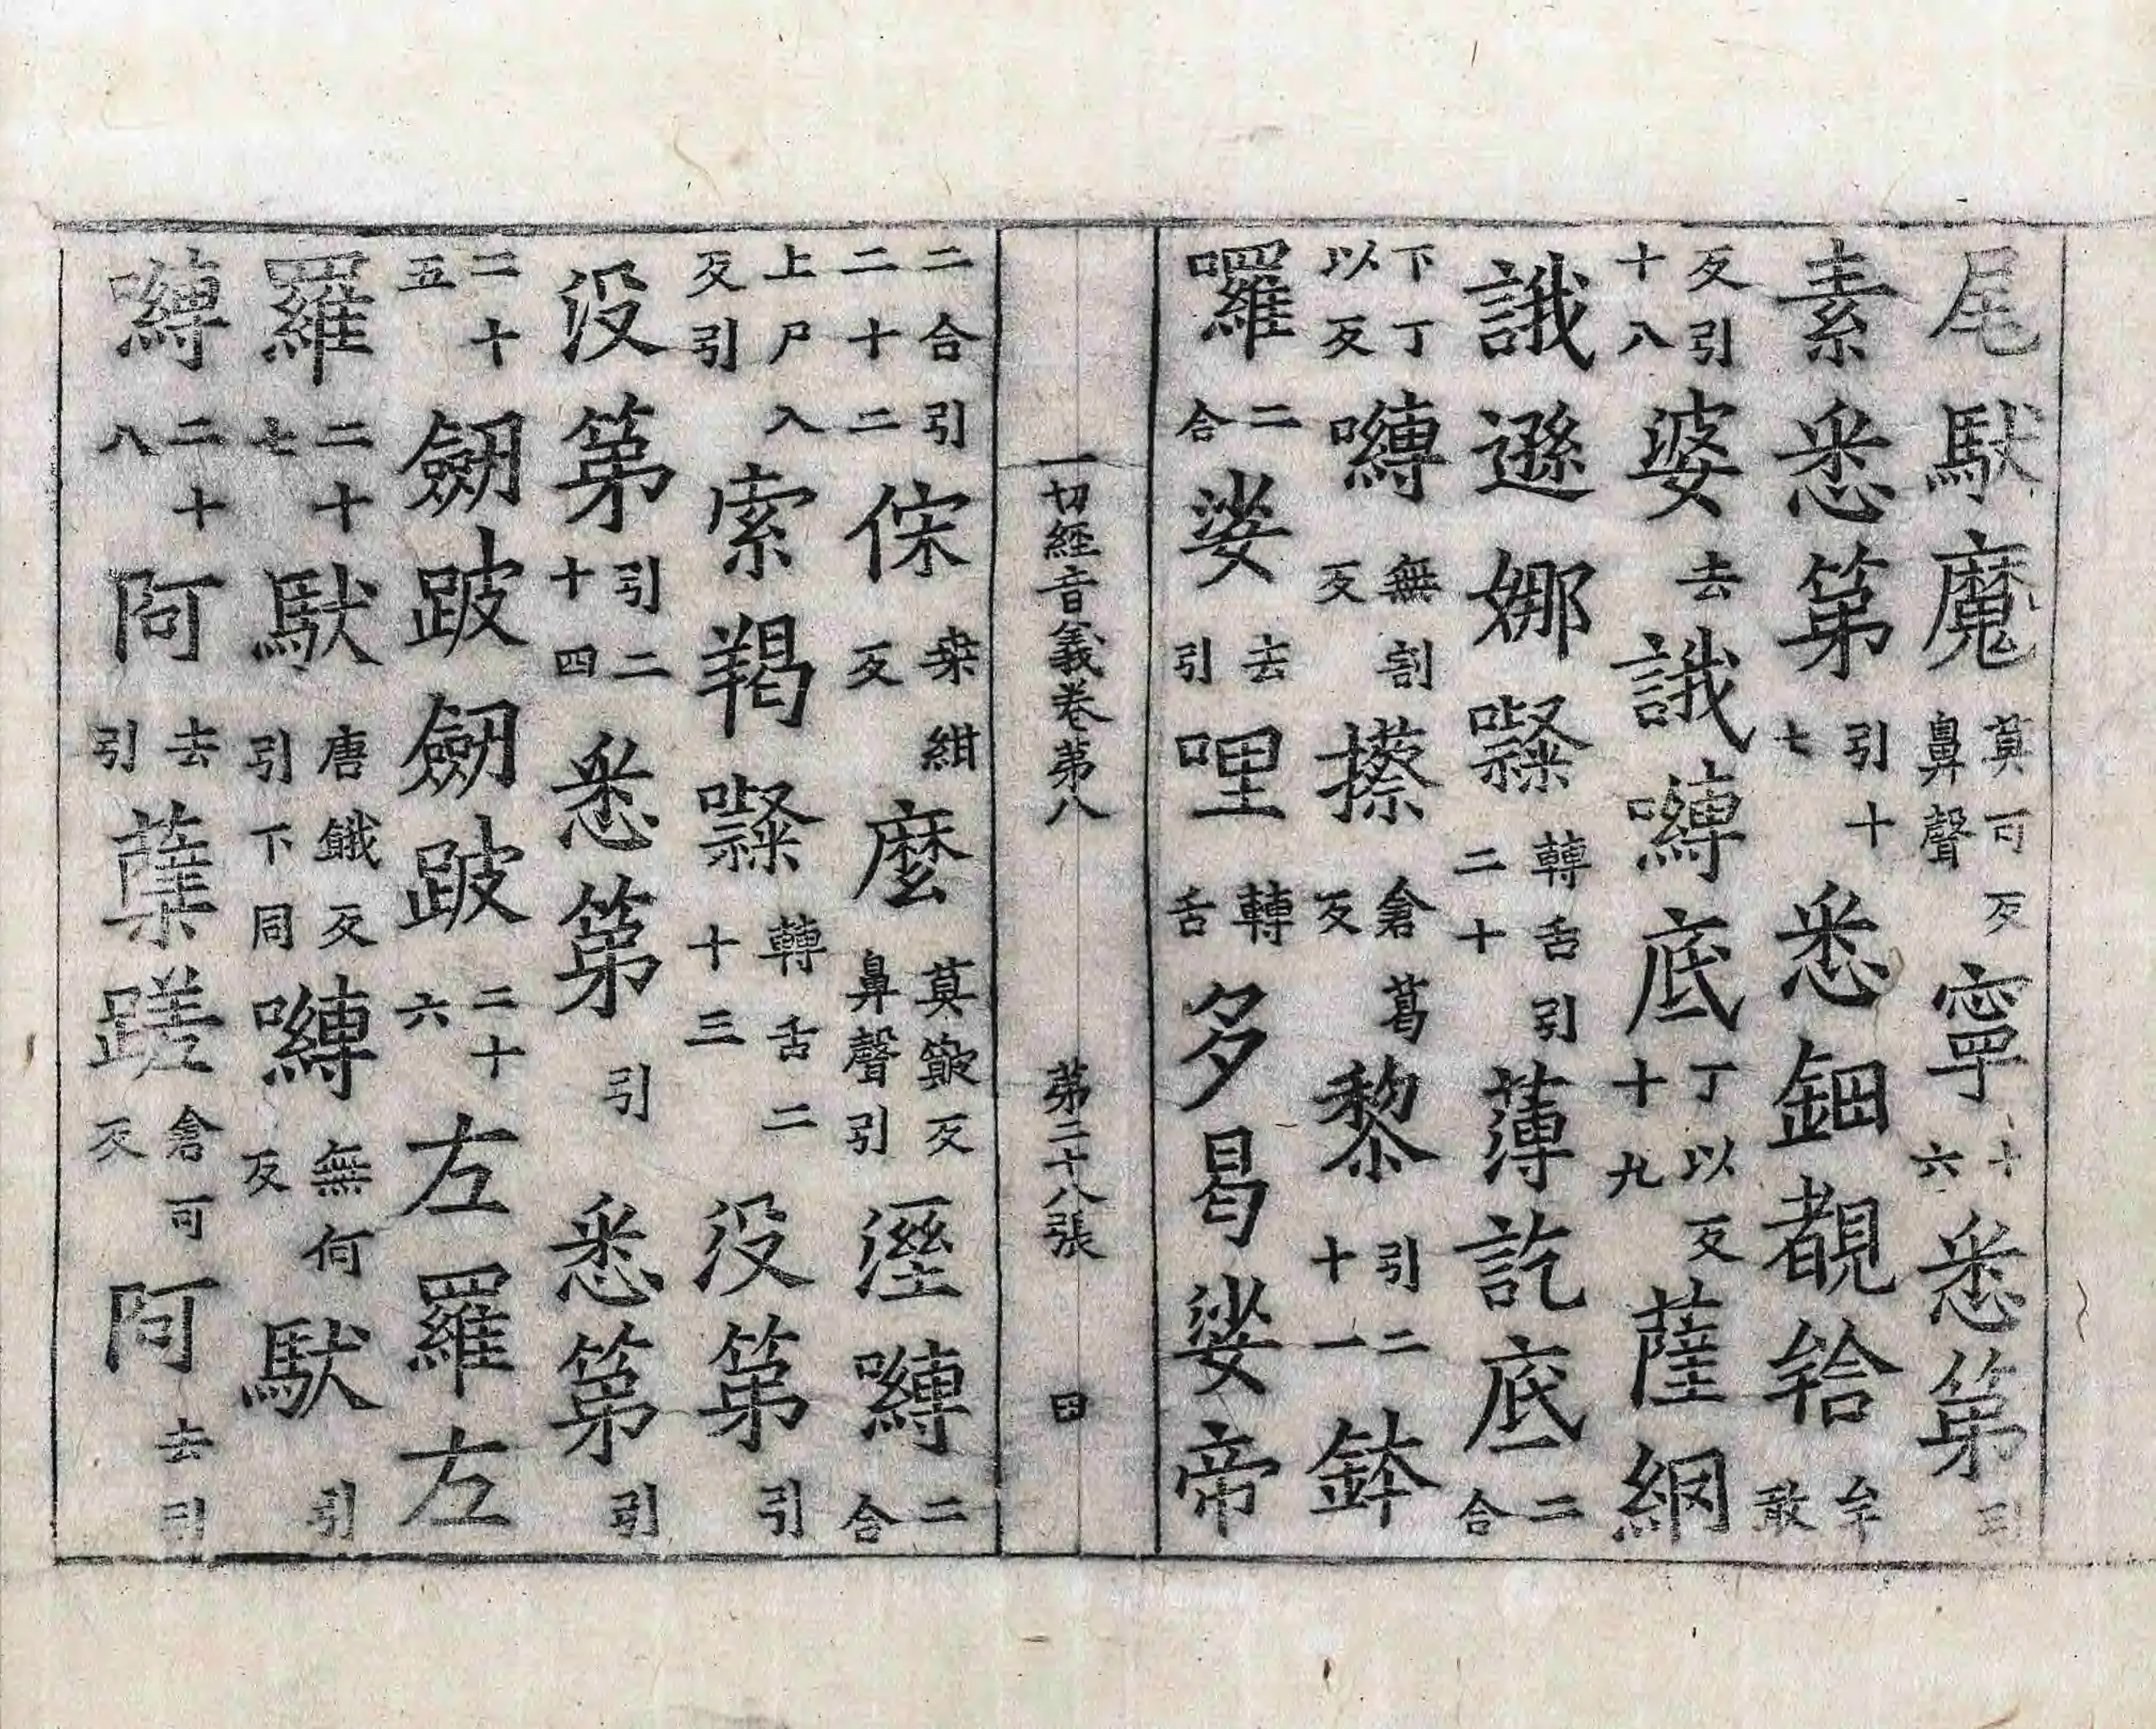 尾馱魔莫可反鼻聲寧十六悉第引
素悉第引十七悉鈿覩𤙖牟敢
反引十八婆去誐嚩底丁以反十九薩網
誐遜娜㘑轉舌引二十薄訖底二合
下丁以反嚩無割反攃倉葛反黎引二十一鉢
囉二合娑去引哩轉舌多曷娑帝
一切經音義卷第八 第二十八張 田
二合引二十二倸桒紺反麼莫簸反鼻聲引溼嚩二合
上尸入反引索羯㘑轉舌二十三没第引
没第引二十四悉第引悉第引
二十五劒跛劒跛二十六左羅左
羅二十七馱唐餓反引下同嚩無何反馱引
嚩二十八阿去引蘖蹉倉可反阿去引